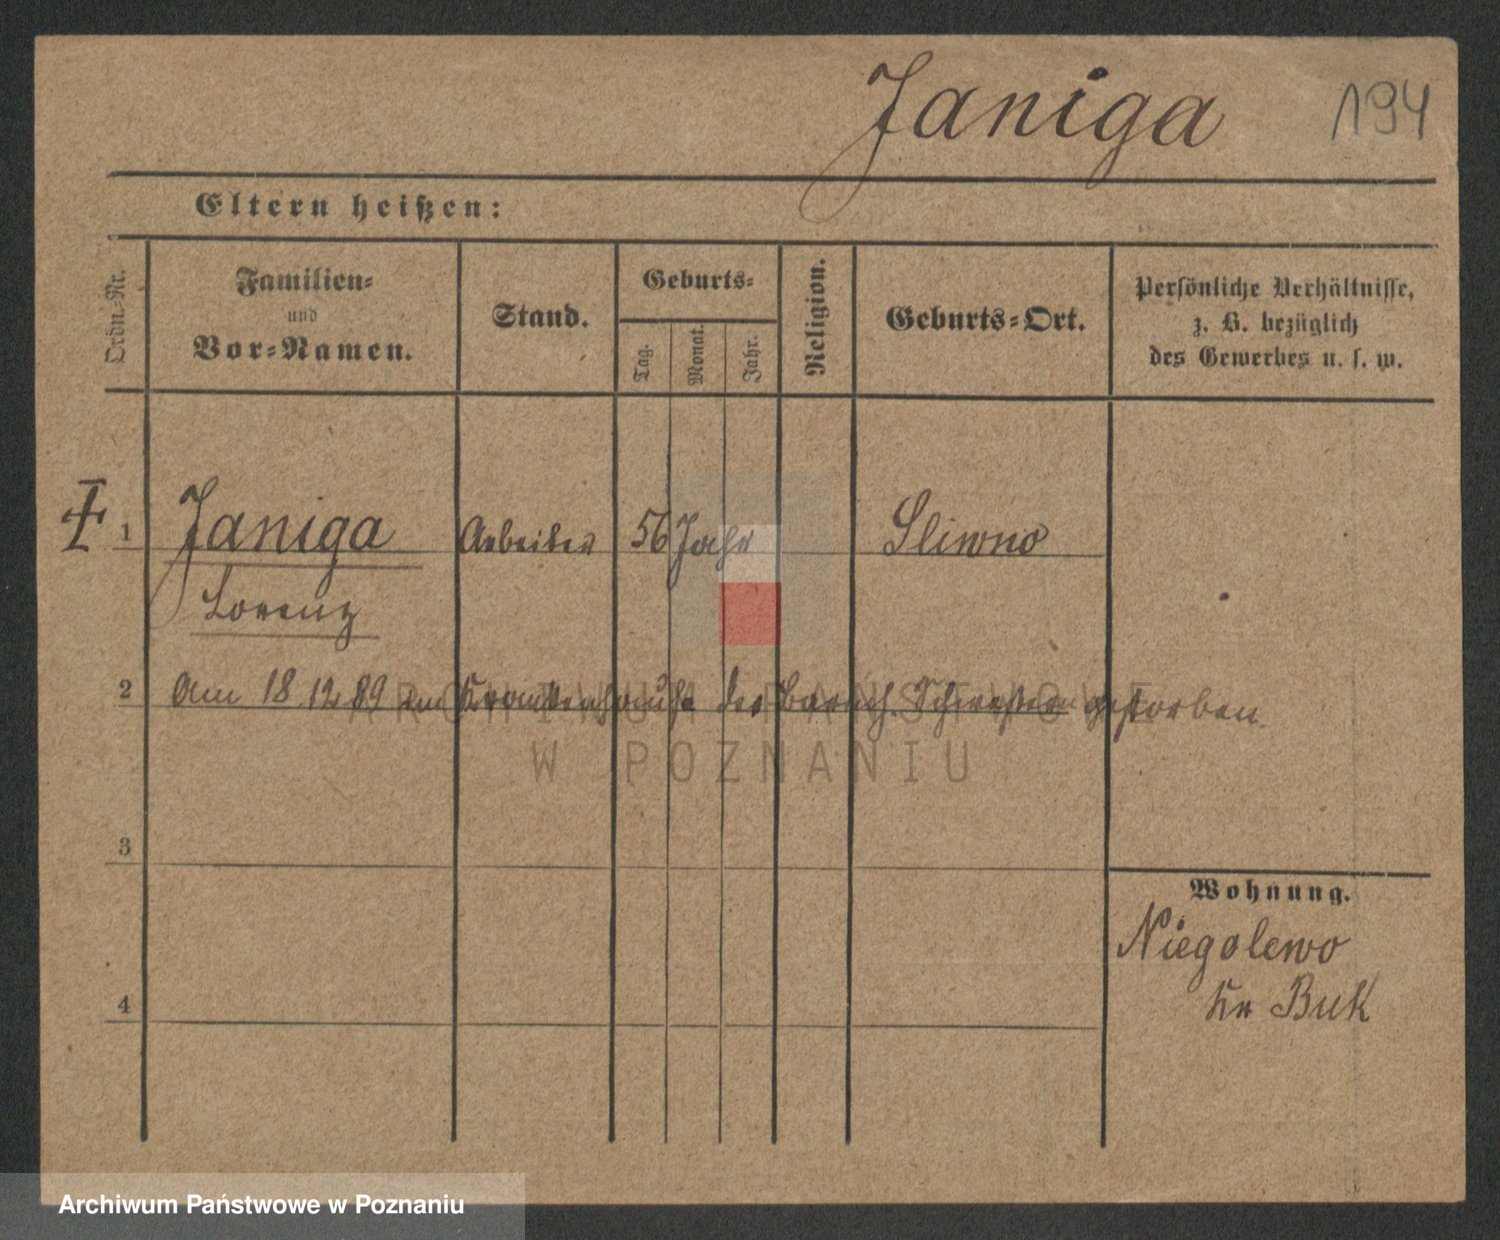 Janiga 194
Eltern heißen:
Ordn.-Nr.
Familien-
und
Vor-Namen.
Stand.
Geburts-
Tag.
Monat.
Jahr.
Religion.
Geburts-Ort.
Persönliche Verhältnisse,
z. B. bezüglich
des Gewerbes u. s. w.
1 Janiga Arbeiter 56 Jahr Sliwno
Lorenz
2 Am 18.12.89 im Krankenhause der barmh. Schwestern gestorben.
ARCHIWUM PAŃSTWOWE
W POZNANIU
3
Wohnung.
Niegolewo
Kr Buk
4
Archiwum Państwowe w Poznaniu